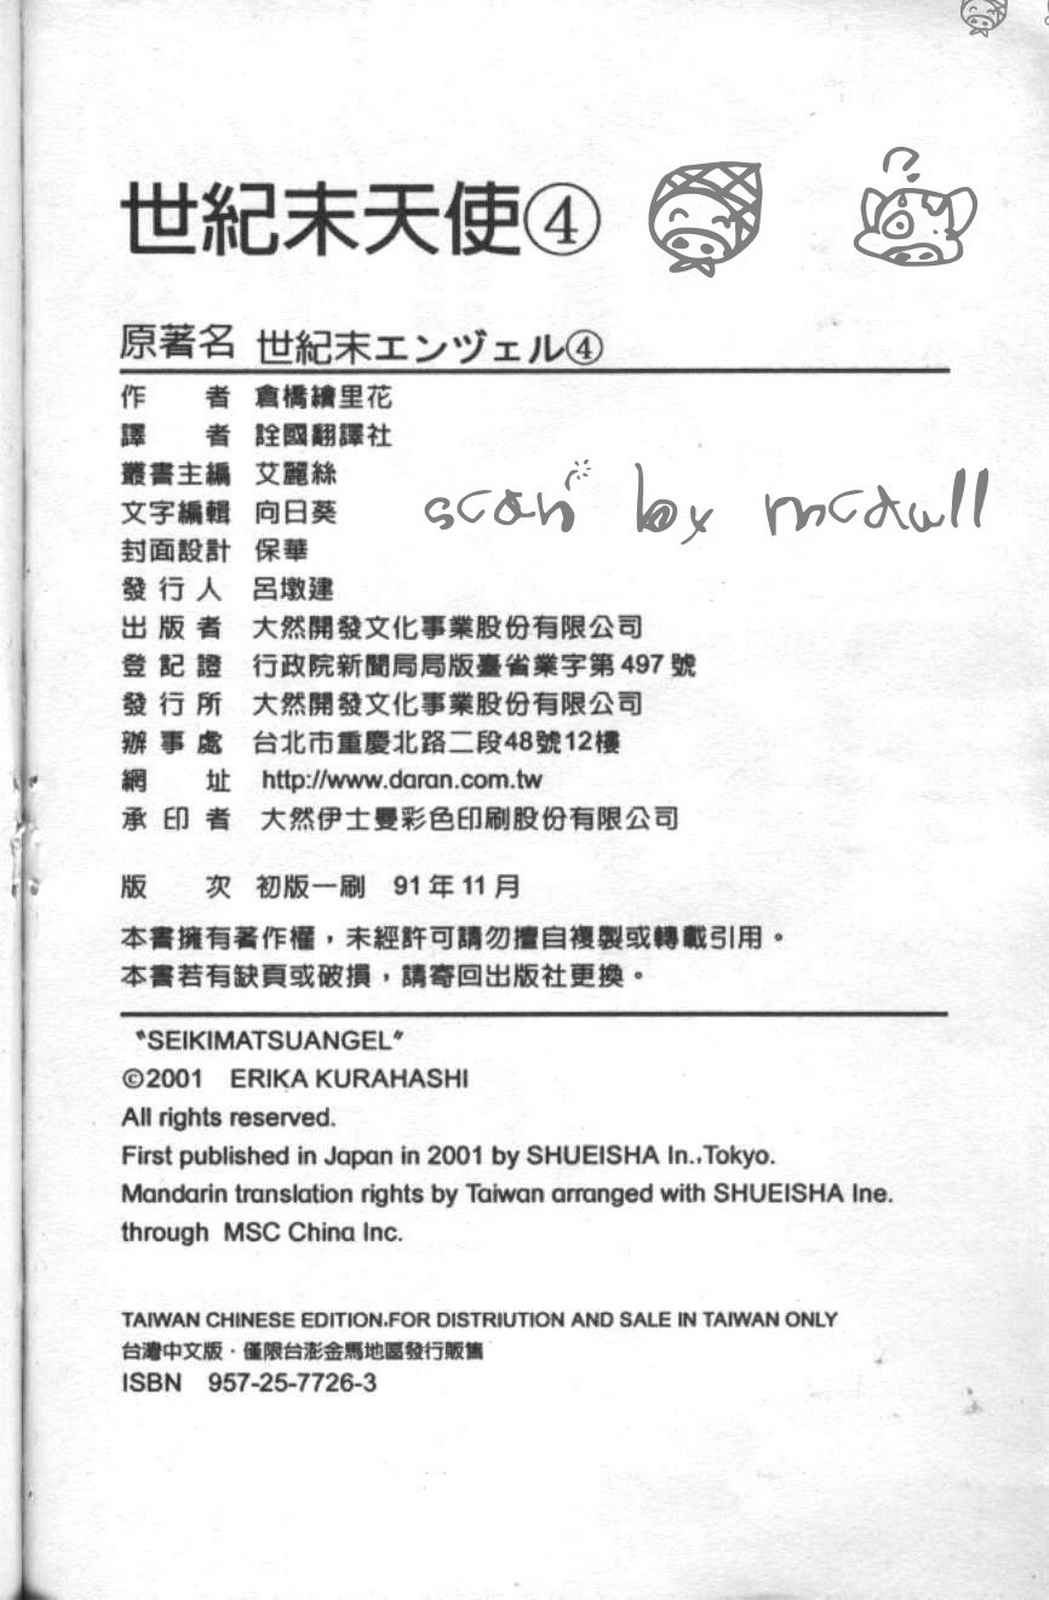 世紀末天使④
原著名 世紀末エンヅェル④
作者 倉橋繪里花
譯者 詮國翻譯社
叢書主編 艾麗絲
文字編輯 向日葵
scan by mcdull
封面設計 保華
發行人 呂墩建
出版者 大然開發文化事業股份有限公司
登記證 行政院新聞局局版臺省業字第497號
發行所 大然開發文化事業股份有限公司
辦事處 台北市重慶北路二段48號12樓
網址 http://www.daran.com.tw
承印者 大然伊士曼彩色印刷股份有限公司
版次 初版一刷 91年11月
本書擁有著作權，未經許可請勿擅自複製或轉載引用。
本書若有缺頁或破損，請寄回出版社更換。
〝SEIKIMATSUANGEL〞
©2001 ERIKA KURAHASHI
All rights reserved.
First published in Japan in 2001 by SHUEISHA In.,Tokyo.
Mandarin translation rights by Taiwan arranged with SHUEISHA Ine.
through MSC China Inc.
TAIWAN CHINESE EDITION.FOR DISTRIUTION AND SALE IN TAIWAN ONLY
台灣中文版·僅限台澎金馬地區發行販售
ISBN 957-25-7726-3